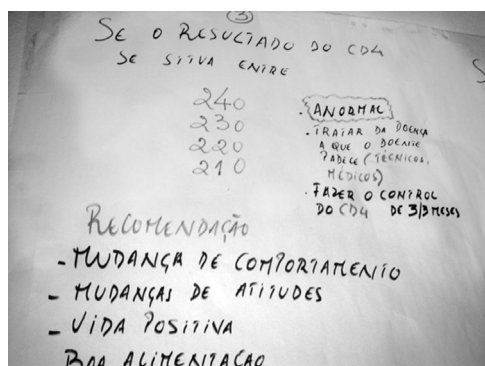 3
SE O RESULTADO DO CD4
SE SITUA ENTRE
240
230
220
210
. ANORMAL
. TRATAR DA DOENÇA
A QUE O DOENTE
PADECE (TÉCNICOS,
MÉDICOS)
. FAZER O CONTROL
DO CD4 DE 3/3 MESES
RECOMENDAÇÃO
- MUDANÇA DE COMPORTAMENTO
- MUDANÇAS DE ATITUDES
- VIDA POSITIVA
BOA ALIMENTAÇÃO